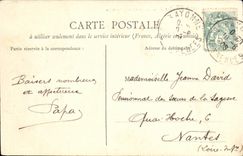 CARTE POSTALE
à utiliser seulement dans le service intérieur (France, Algérie et
Partie réservée à la correspondance
Baisers nombreux
et affectueux
Papa
Mademoiselle Jeanne David
Pensionnat des Sœurs de la Sagesse
Quai Hoche, 6
Nantes